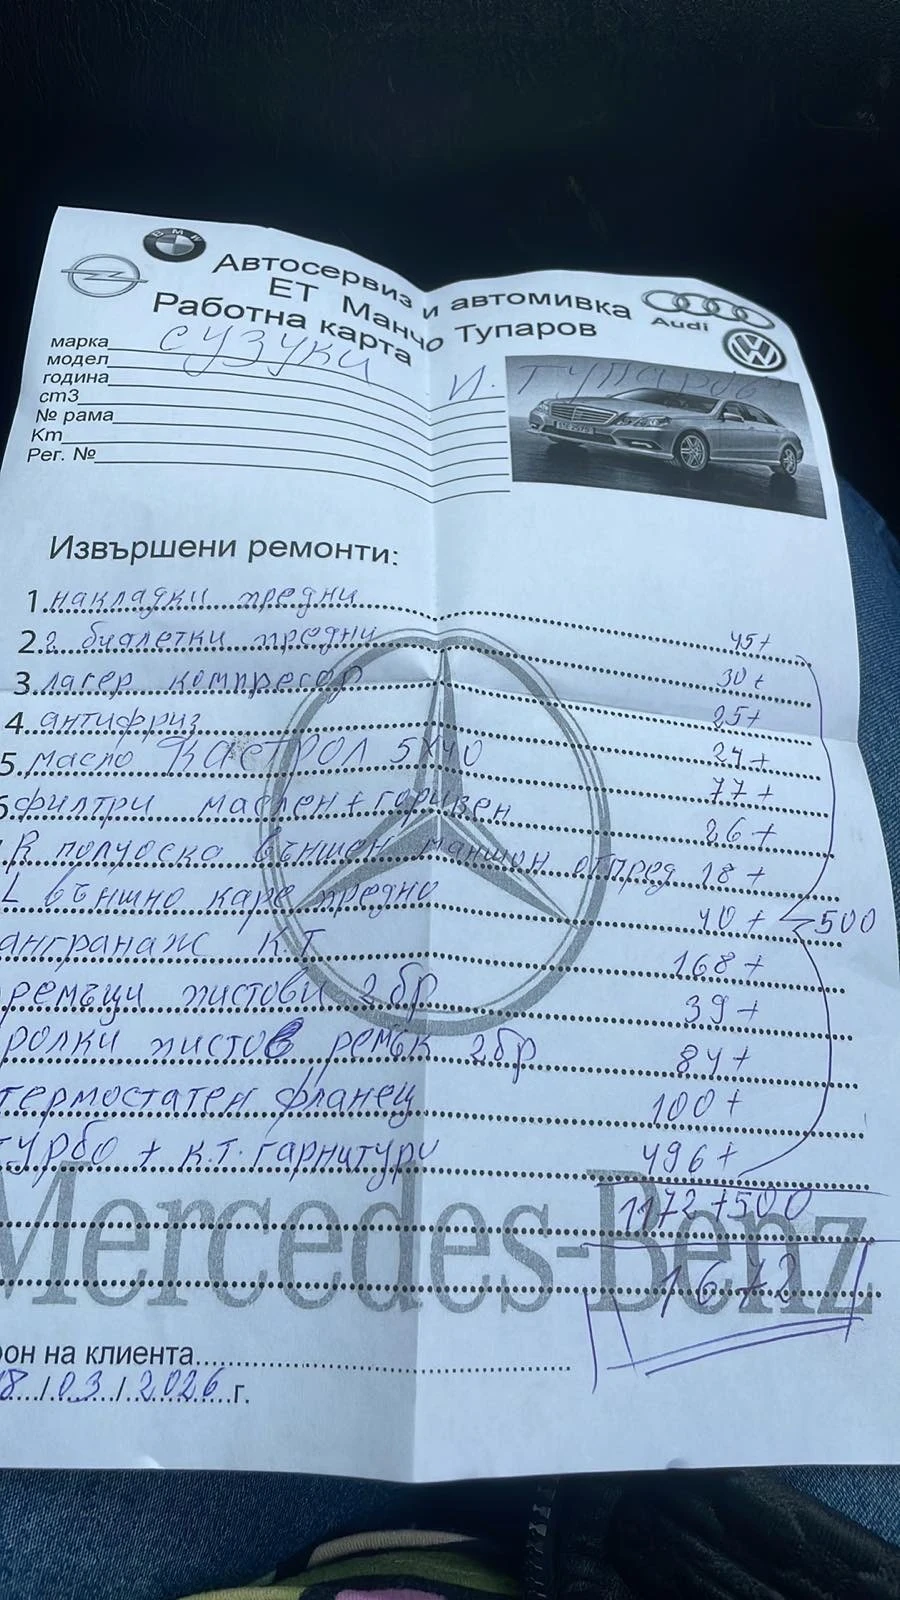 BMW
Автосервиз и автомивка
ЕТ Манчо Тупаров
Работна карта
Audi
марка сузуки
модел
година И. Тупаров
cm3
№ рама
Km
Рег. №
Извършени ремонти:
1. накладки предни 45+
2. 2 биалетки предни 30+
3. лагер компресор 25+
4. антифриз 24+
5. масло Кастрол 5x40 77+
6 филтри маслен + горивен 26+
R полуоска външен маншон отпред 18+
L външно каре предно 40+ 500
ангранаж к.т 168+
ремъци пистови 2бр 39+
ролки пистов ремък 2бр 84+
термостатен фланец 100+
турбо + к.т. гарнитури 496+
1172+500
1672
Mercedes-Benz
он на клиента
18/03/2026г.